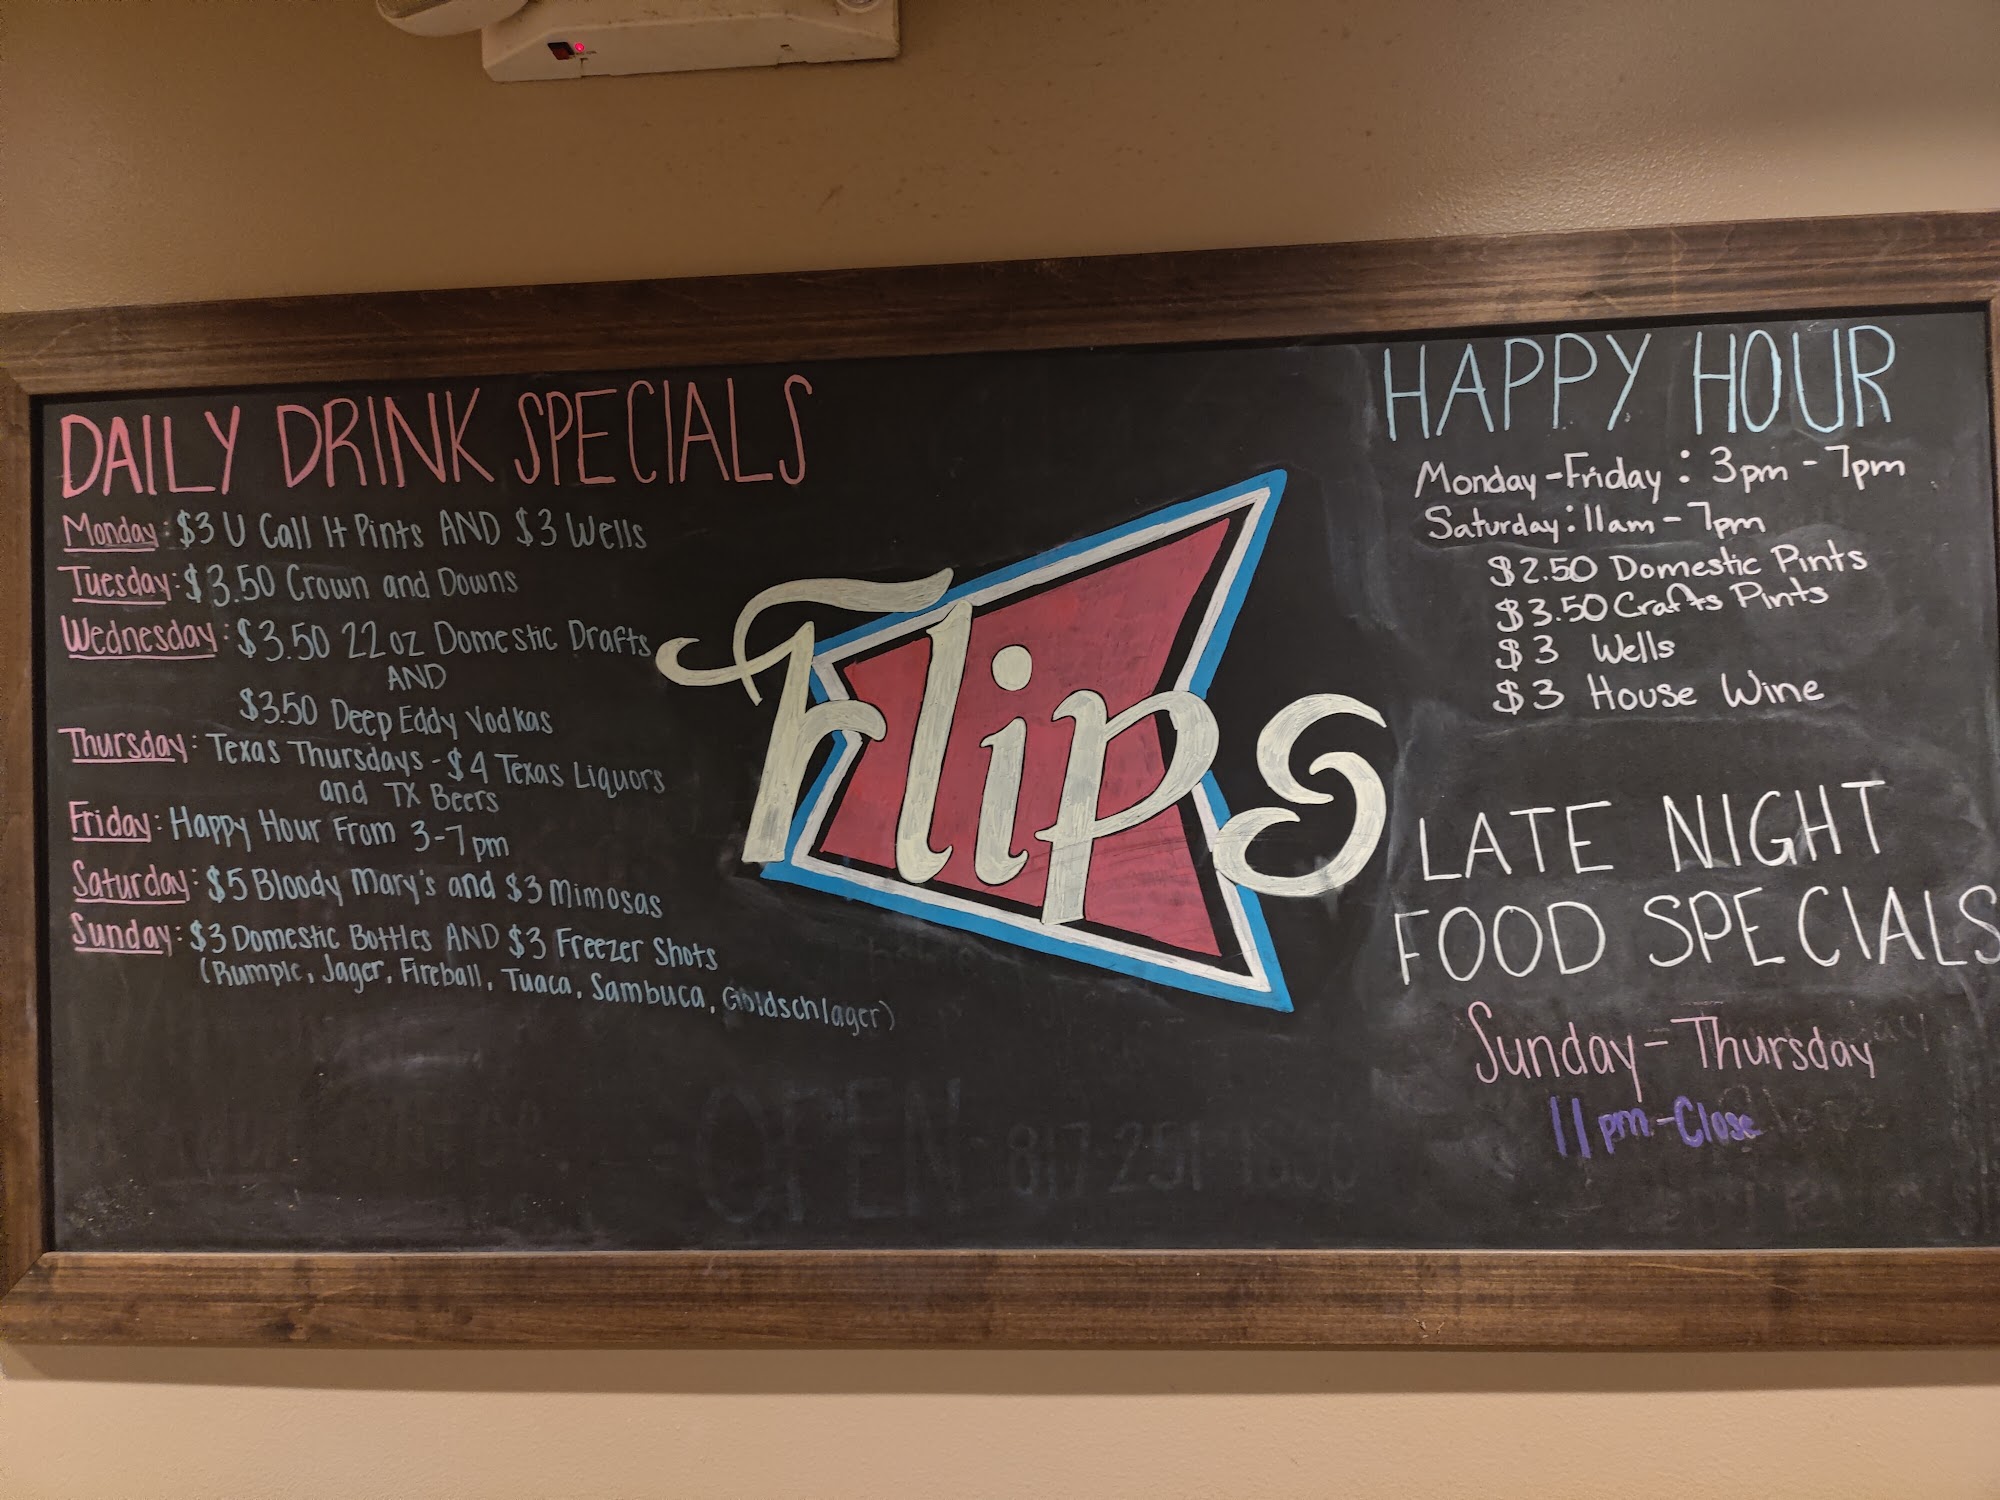 DAILY DRINK SPECIALS
Monday: $3 U Call It Pints AND $3 Wells
Tuesday: $3.50 Crown and Downs
Wednesday: $3.50 22oz Domestic Drafts
AND
$3.50 Deep Eddy Vodkas
Thursday: Texas Thursdays - $4 Texas Liquors
and TX Beers
Friday: Happy Hour From 3-7pm
Saturday: $5 Bloody Mary's and $3 Mimosas
Sunday: $3 Domestic Bottles AND $3 Freezer Shots
(Rumple, Jager, Fireball, Tuaca, Sambuca, Goldschlager)
Flips
HAPPY HOUR
Monday-Friday: 3pm - 7pm
Saturday: 11am - 7pm
$2.50 Domestic Pints
$3.50 Crafts Pints
$3 Wells
$3 House Wine
LATE NIGHT
FOOD SPECIALS
Sunday - Thursday
11pm-Close
OPEN